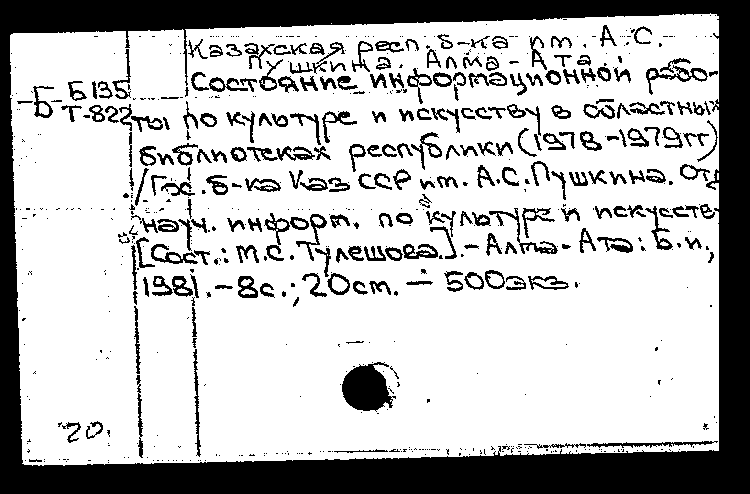 Казахская респ. б-ка им. А.С.
Пушкина. Алма-Ата.
Состояние информационной рабо-
Б Б135
Т-822
ты по культуре и искусству в областных
библиотеках республики (1978-1979гг)
/ Гос. б-ка Каз ССР им. А.С. Пушкина. Отд
науч. информ. по культуре и искусств
[Сост.: М.С. Тулешова]. - Алма-Ата: Б.и.,
1981. - 8с.; 20см. - 500экз.
20.